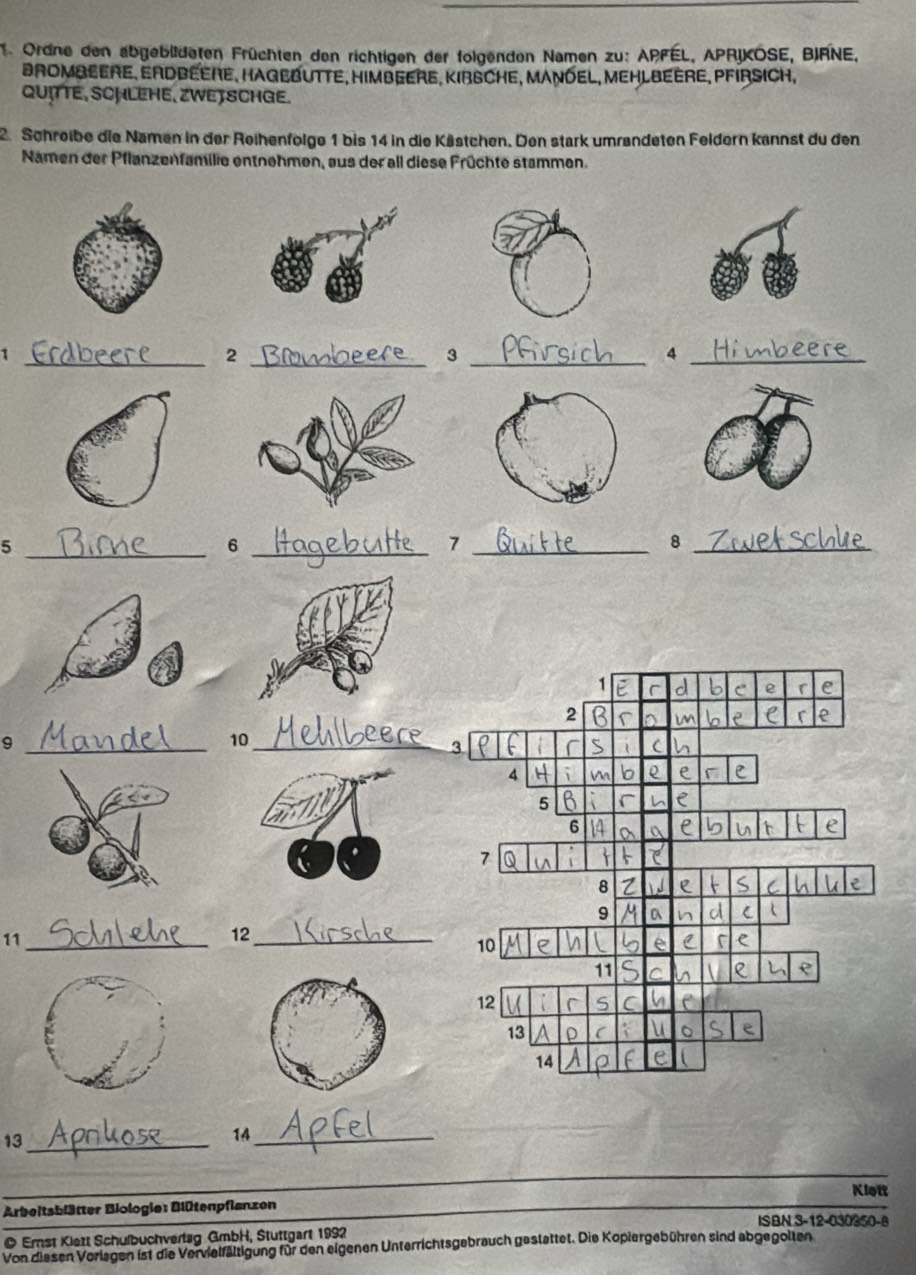 1. Ordne den abgebildeten Früchten den richtigen der folgenden Namen zu: APFEL, APRIKOSE, BIRNE,
BROMBEERE, ERDBEERE, HAGEBUTTE, HIMBEERE, KIRSCHE, MANDEL, MEHLBEERE, PFIRSICH,
QUITTE, SCHLEHE, ZWETSCHGE.
2. Schreibe die Namen in der Reihenfolge 1 bis 14 in die Kästchen. Den stark umrandeten Feldern kannst du den
Namen der Pflanzenfamilie entnehmen, aus der all diese Früchte stammen.
1 Erdbeere 2 Brombeere 3 Pfirsich 4 Himbeere
5 Birne 6 Hagebutte 7 Quitte 8 Zwetschke
9 Mandel 10 Mehlbeere
11 Schlehe 12 Kirsche
13 Aprikose 14 Apfel
1 Erdbeere
2 Brombeere
3 Pfirsich
4 Himbeere
5 Birne
6 Hagebutte
7 Quitte
8 Zwetschke
9 Mandel
10 Mehlbeere
11 Schlehe
12 Kirsche
13 Aprikose
14 Apfel
Klett
Arbeitsblätter Biologie: Blütenpflanzen
ISBN 3-12-030350-8
© Ernst Klett Schulbuchverlag GmbH, Stuttgart 1992
Von diesen Vorlagen ist die Vervielfältigung für den eigenen Unterrichtsgebrauch gestattet. Die Kopiergebühren sind abgegolten